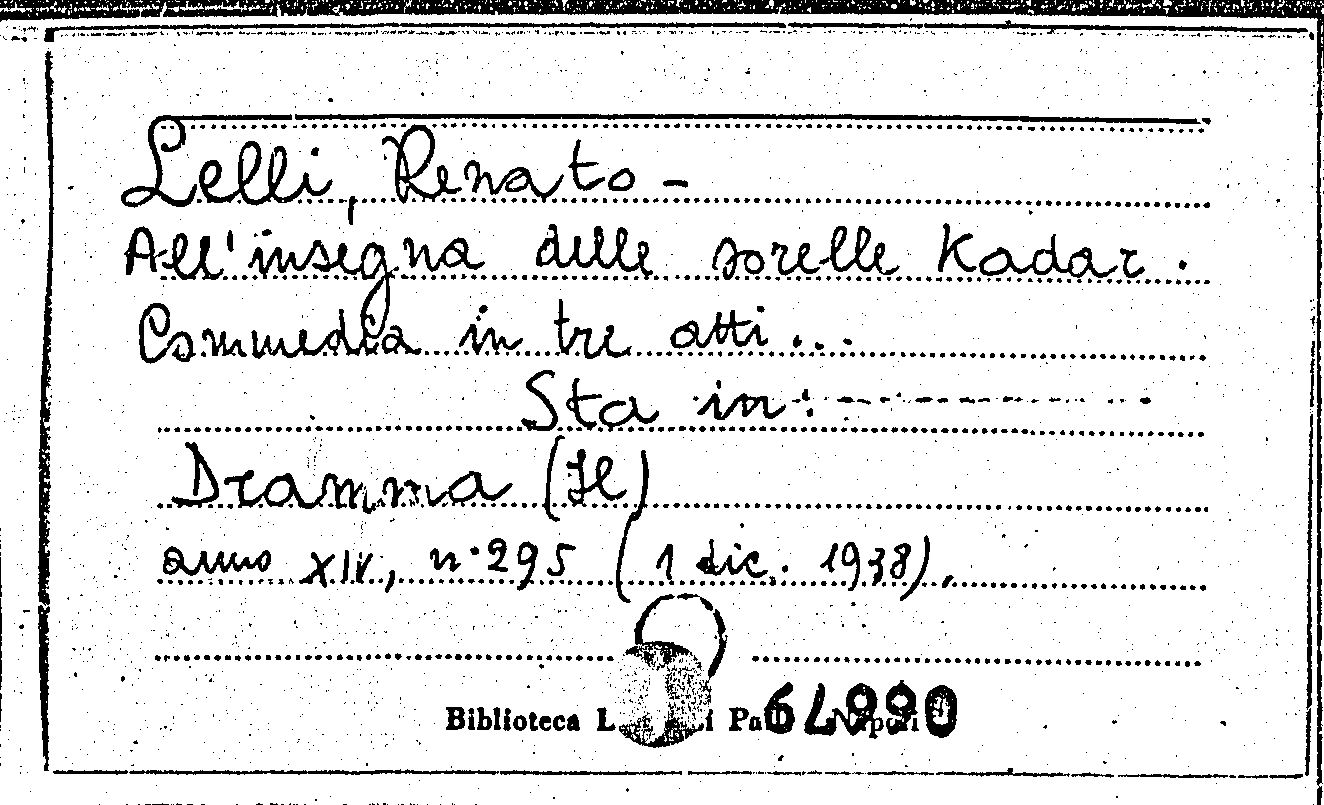 Lelli, Renato -
All'insegna delle sorelle Kadar.
Commedia in tre atti...
Sta in:
Dramma (Il)
anno XIV, n.295 (1 dic. 1938).
Biblioteca L